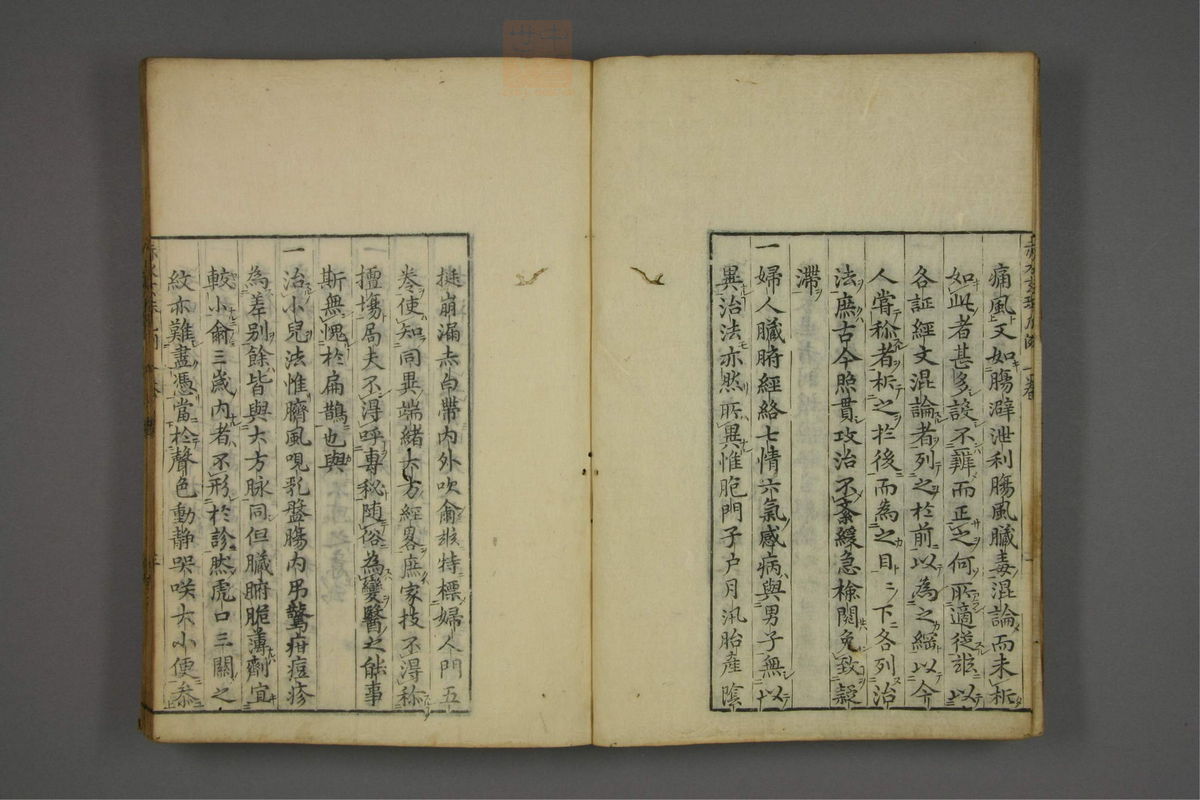 痛風又如腸澼泄利腸風臟毒混論而未析
如此者甚多設不辨而正之何所適從玆以
各証經文混論者列之於前以為之綱以今
人嘗称者析之於後而為之目下各列治
法庶古今照貫攻治不紊緩急檢閱免致疑
滯
一婦人臟腑經絡七情六氣感病與男子無以
異治法亦然所異惟胞門子户月汛胎產陰
挺崩漏赤白帶内外吹爾玆特標婦人門五
卷使知同異端緒大方經畧庶家技不得称
擅塲局夫不得呼專秘随俗為變醫之能事
斯無愧於扁鵲也與
一治小兒法惟臍風哯乳盤腸内吊驚疳痘疹
為差别餘皆與大方脉同但臟腑脆薄劑宜
較小爾三歲内者不形於診然虎口三關之
紋亦難盡憑當於聲色動靜哭咲大小便叅